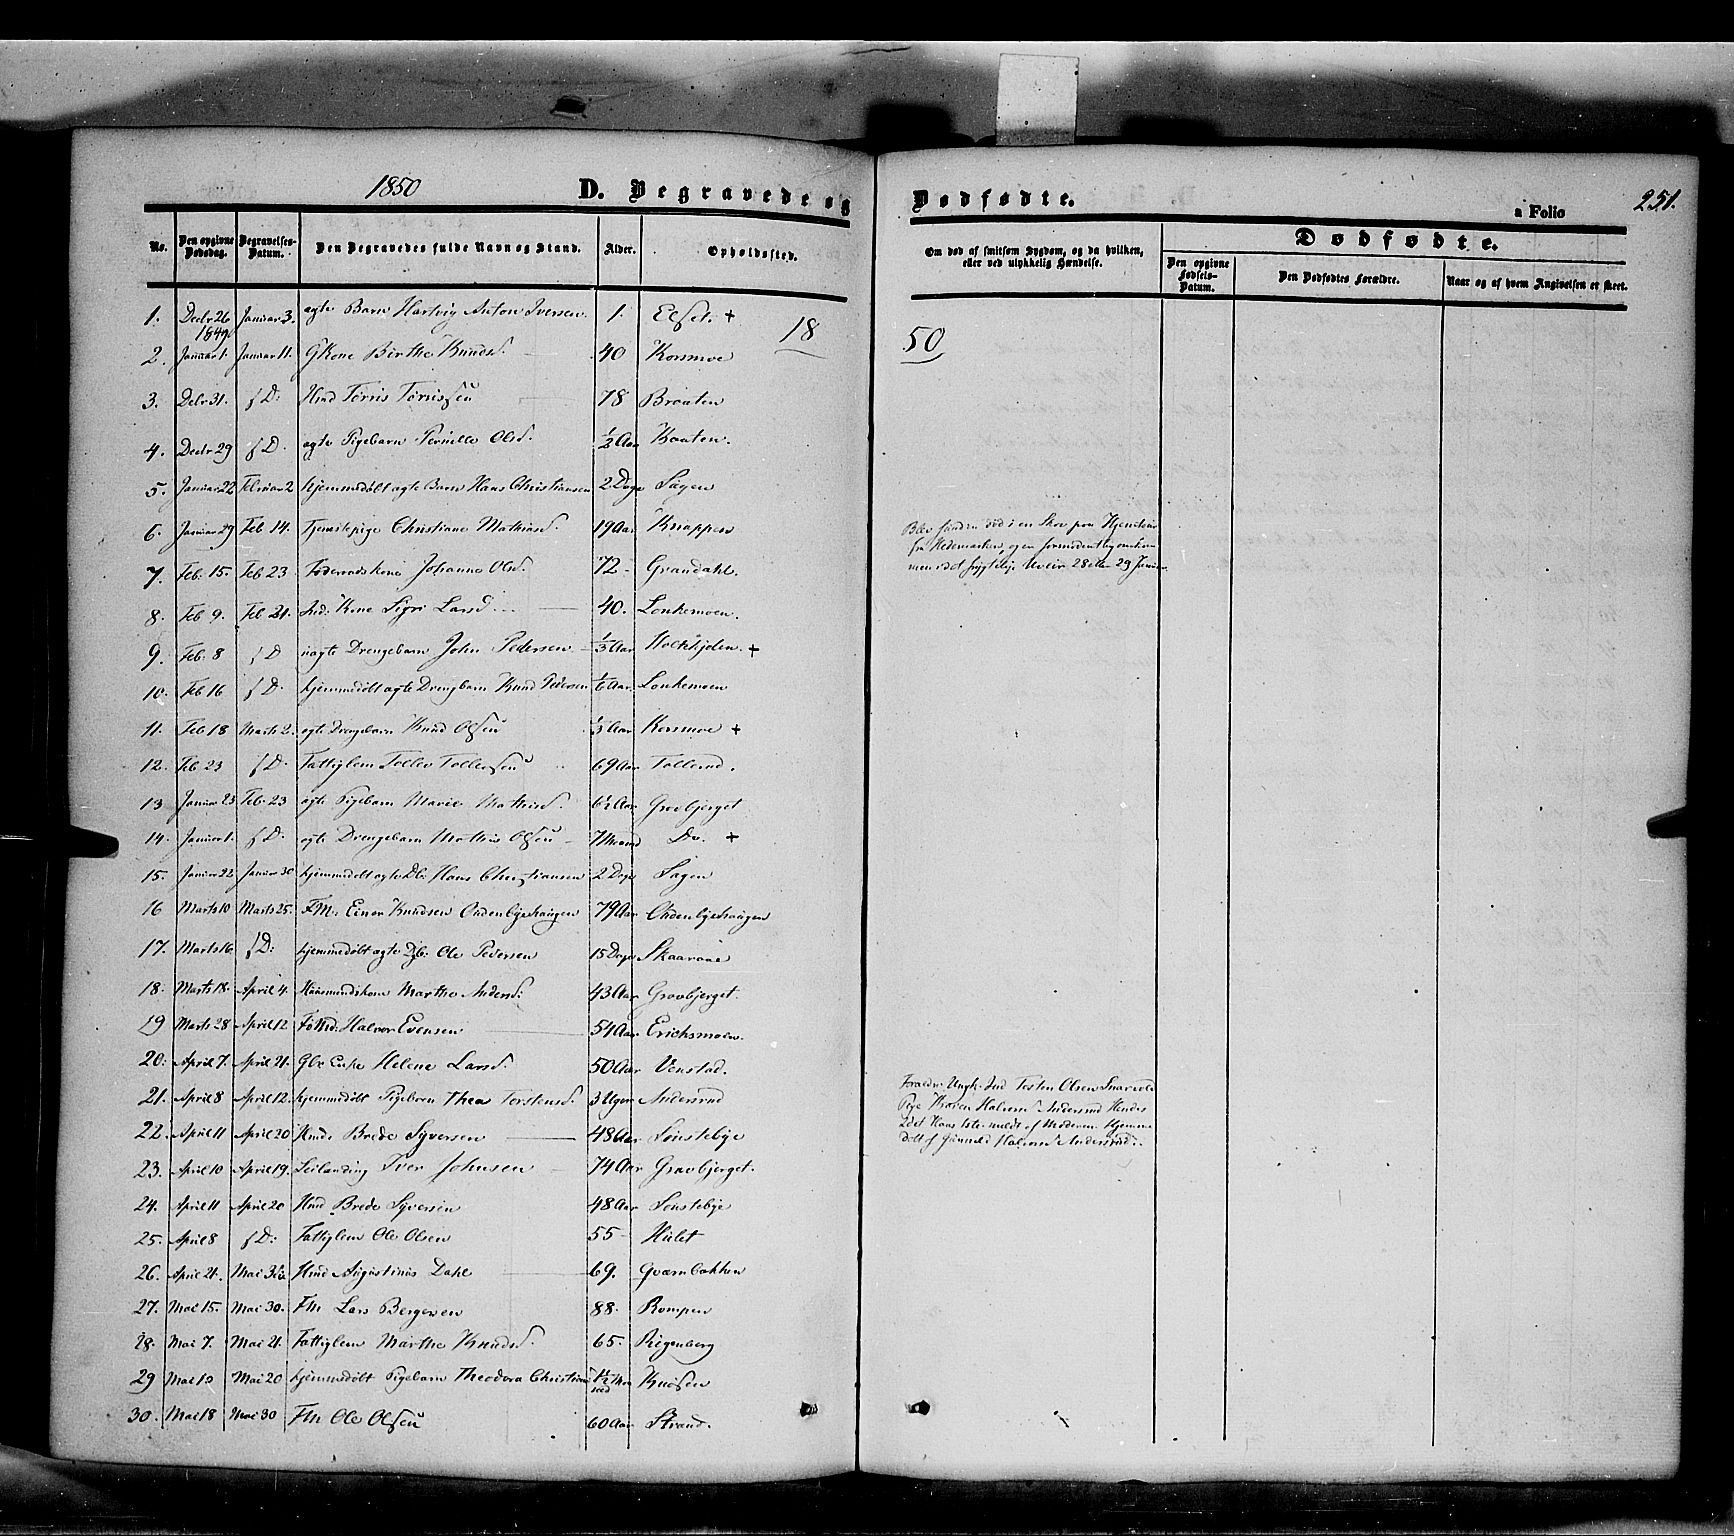 1850 D. Begravede og Dødfødte. a Folio 251.
No. Den opgivne Dødsdag. Begravelses-Datum. Den Begravedes fulde Navn og Stand. Alder. Opholdssted. Om død af smitsom Sygdom, og da hvilken, eller ved ulykkelig Hændelse. Dødfødte.
Den opgivne Fødsels-Datum. Den Dødfødtes Forældre. Naar og af hvem Angivelsen er skeet.
1850
1. Decbr 26 1849 Januar 3. ægte Barn Hartvig Anton Iversen. 1. +
2. Januar 1. Januar 11. GKone Birthe Knudsd. 40 Korsmoe
3. Debr 31. s D: Hmd Torris Torrissen 78 Braaten
4. Decbr 29 s D. ægte Pigebarn Pernille Olsd. 1/2 Aar Braaten.
5. Januar 22 Februar 2 hjemmedøbt ægte Barn Hans Christiansen 2 Dage Sagen
6. Januar 29 Feb 14. Tjenestepige Christiane Mathisd. 19 Aar Knappen
Blev funden død i en Skov paa Hjemveien
fra Hedemarken, og er formodentlig omkom
men i det frygtelige Uveir 28 eller 29 Januar
7. Feb: 15. Feb 23 Føderaadskone Johanne Olsd. 72 - Grandahl.
8. Feb 9. Feb 21. Ind: Kone Sigri Larsd. 40. Lonkemoen.
9. Feb: 8 s D uægte Drengebarn John Pedersen 1/3 Aar +
10. Feb 16 s D. hjemmedøbt ægte Drengbarn Knud Pedersen 1/6 Aar. Lonkemoen
11. Feb 18 Marts 2. ægte Drengebarn Knud Olsen 1/3 Aar Korsmoe +
12. Feb 23 s D. Fattiglem Tollev Tollevsen 69 Aar Tollerud.
13 Januar 23 Feb. 23 ægte Pigebarn Marie Mathisd. 6 1/2 Aar Gravbjerget
14. Januar 1. s D. ægte Drengebarn Mathis Olsen 7 Maaned Do. +
15. Januar 22 Januar 30 hjemmedøbt ægte Db: Hans Christiansen 2 Dage Sagen
16 Marts 10 Marts 25. F.M: Einar Knudsen Ondenbyehaugen 79 Aar Ondenbyehaugen
17. Marts 16 s D: hjemmedøbt ægte Dgb: Ole Pedersen 15 Dage Skaaraae
18. Marts 18. April 4. Huusmandskone Marthe Andersd: 43 Aar Gravbjerget.
19 Marts 28 April 12 Halvor Evensen 54 Aar Erichsmoen.
20: April 7. April 21. Gbr Enke Helene Larsd. 50 Aar Venstad.
21. April 8 April 12. hjemmedøbt Pigebarn Thea Torstensd. 3 Uger Andersrud
Forældr: Ungk. Ind Torsten Olsen
Pige Karen Halvorsd Andersrud Hendes
2det Hans 1ste meldt af Moderen Hjemme
døbt af Gunnild Halvorsd Andersrud.
22. April 11 April 20 Hmd: Brede Syversen 48 Aar Sønstebye
23. April 10 April 19. Leilænding Iver Johnsen 74 Aar Gravbjerget.
24. April 11 April 20 Hmd Brede Syversen 48 Aar Sønstebye
25. April 8 s D: Fattiglem Ole Olsen 55 - Hulet
26. April 21. Mai Hmd Augustinus Dahl 69. Qvernbakken
27. Mai 15. Mai 30. FM Lars Bergersen 88. Rompen
28. Mai 7. Mai 21. Fattiglem Marthe Knudsd. 65. Rigenberg
29 Mai 10 Mai 20 hjemmedøbt Pigebarn Theodora Christiansd 1 1/2 Maaned
30. Mai 18 Mai 30 FM Ole Olsen 60 Aar Strand.